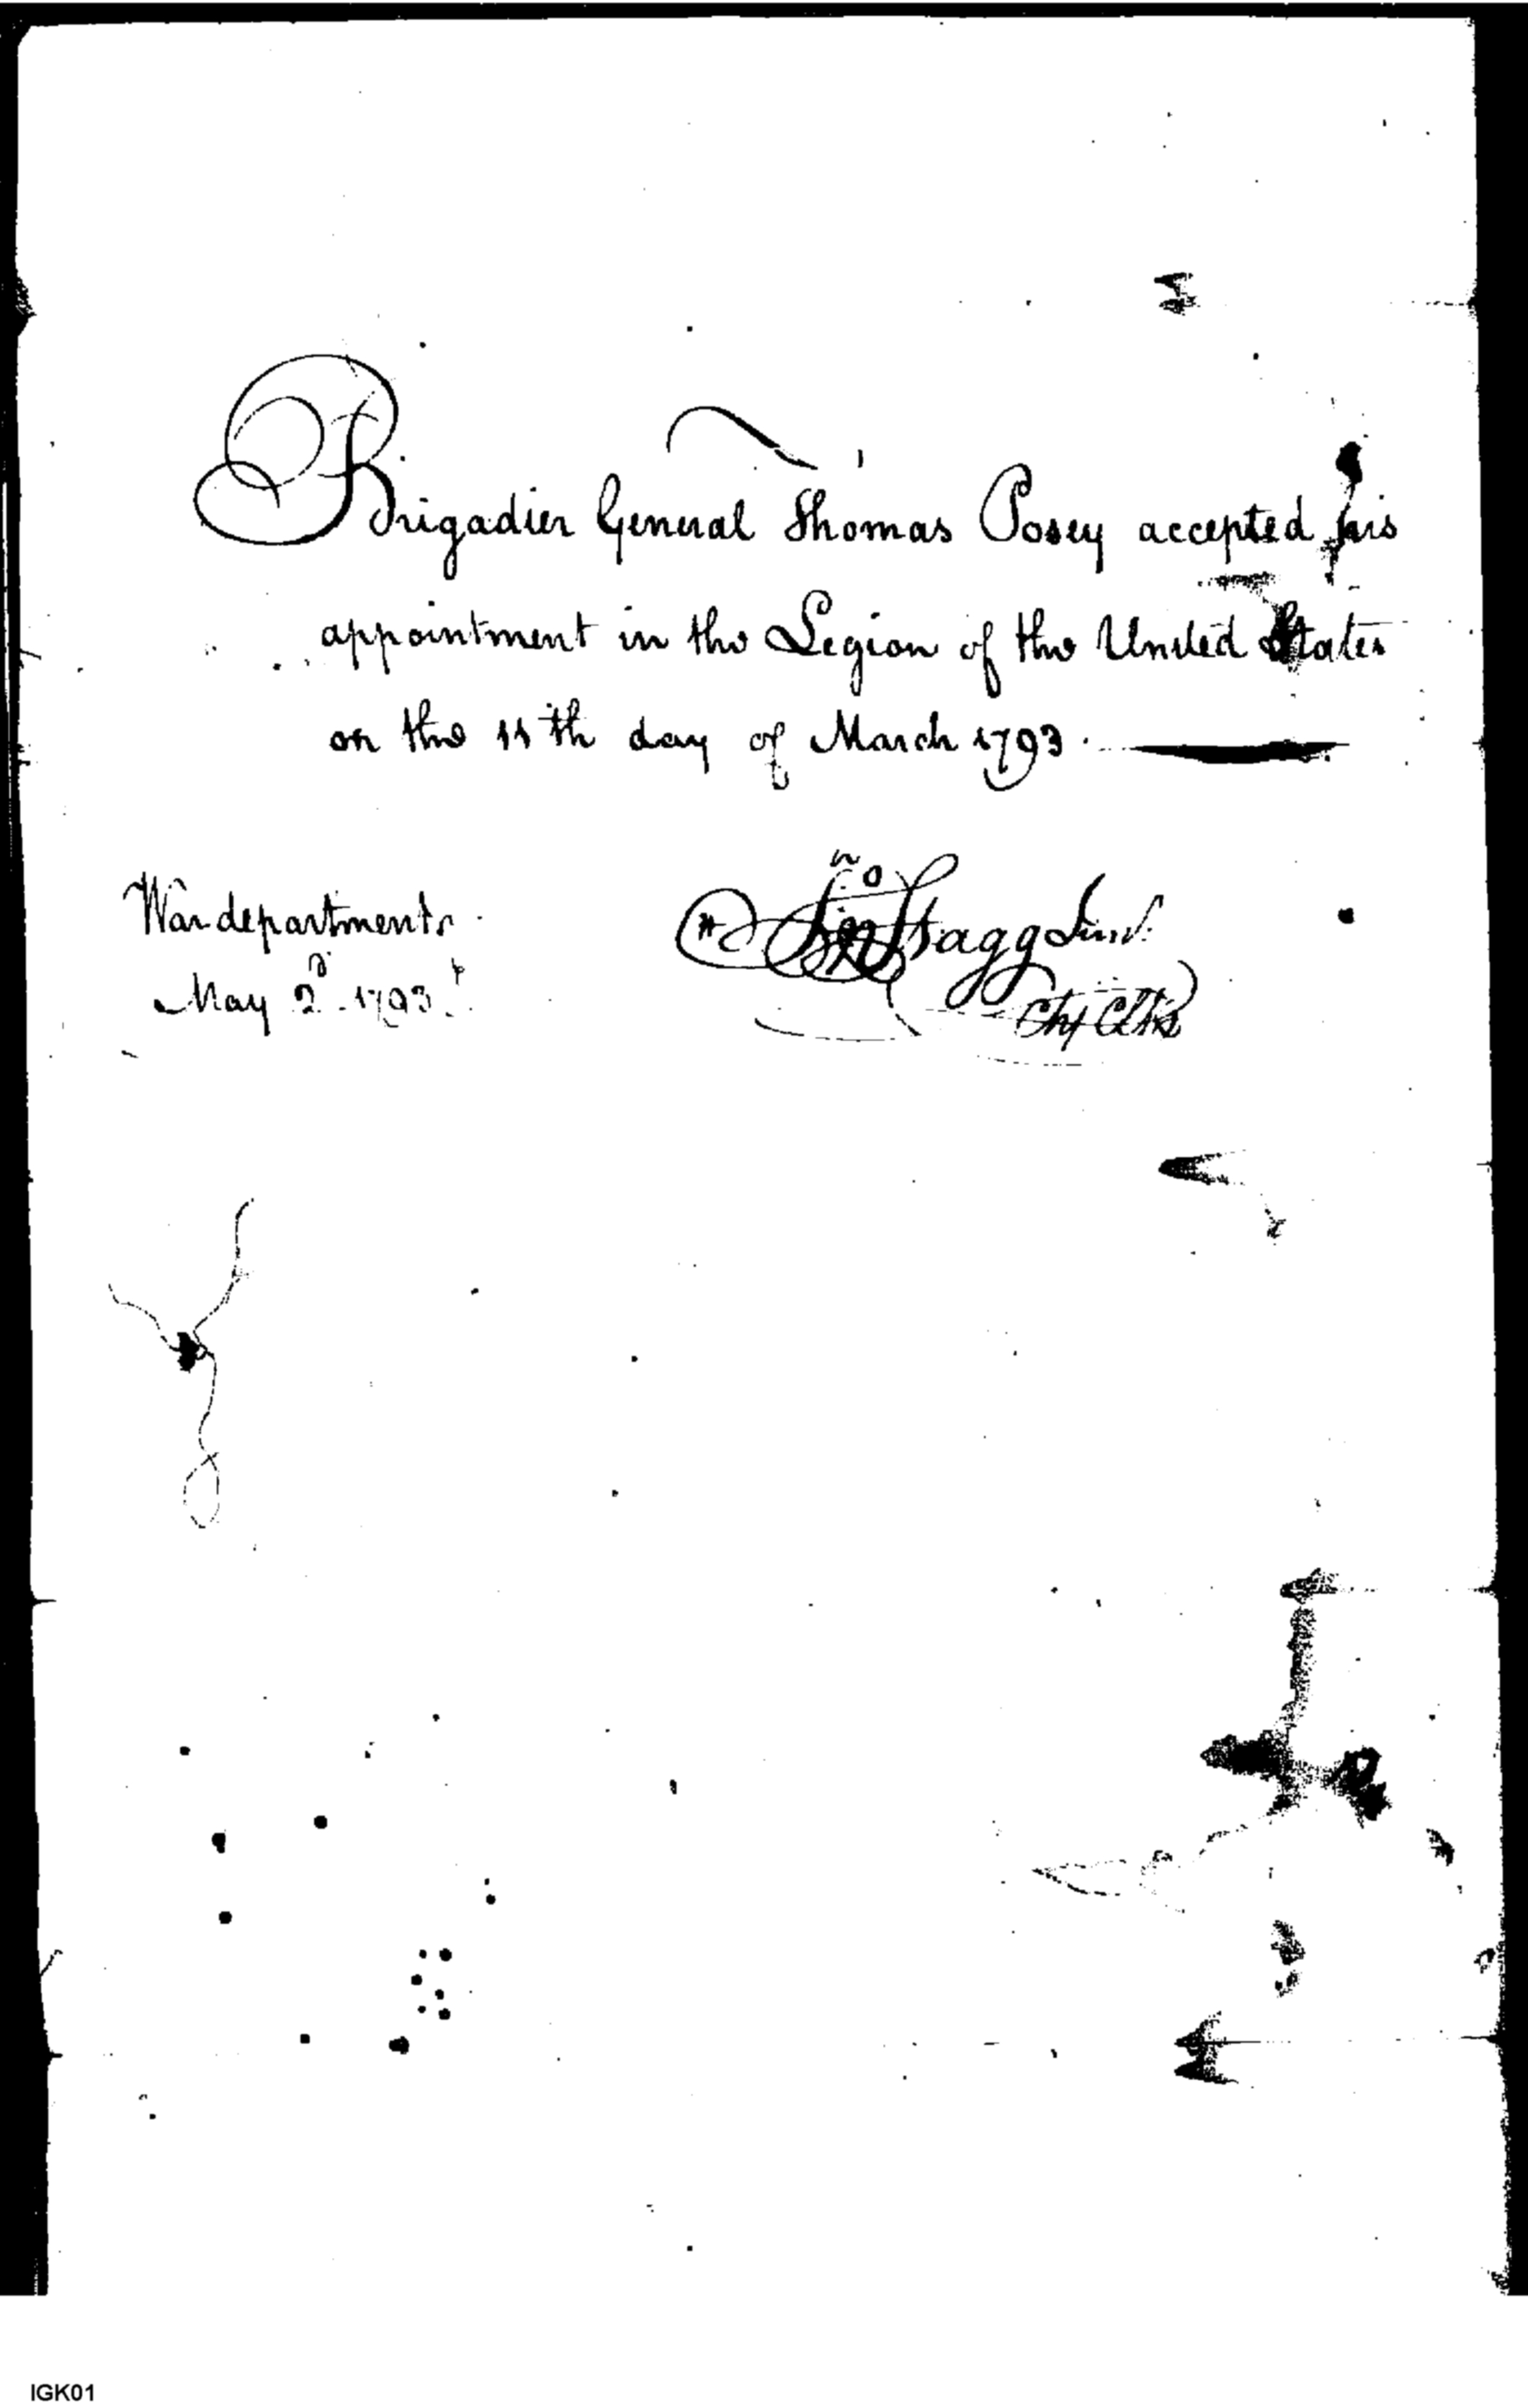 Brigadier General Thomas Posey accepted his
appointment in the Legion of the United States
on the 11th day of March 1793.
War department
May 2d. 1793.
Jno Stagg Junr.
Chf Clk
IGK01